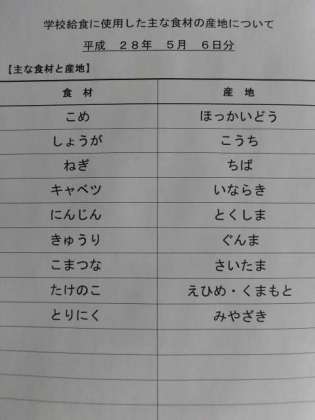 学校給食に使用した主な食材の産地について
平成　２８年　５月　６日分
【主な食材と産地】
食　材　産　地
こめ　ほっかいどう
しょうが　こうち
ねぎ　ちば
キャベツ　いならき
にんじん　とくしま
きゅうり　ぐんま
こまつな　さいたま
たけのこ　えひめ・くまもと
とりにく　みやざき